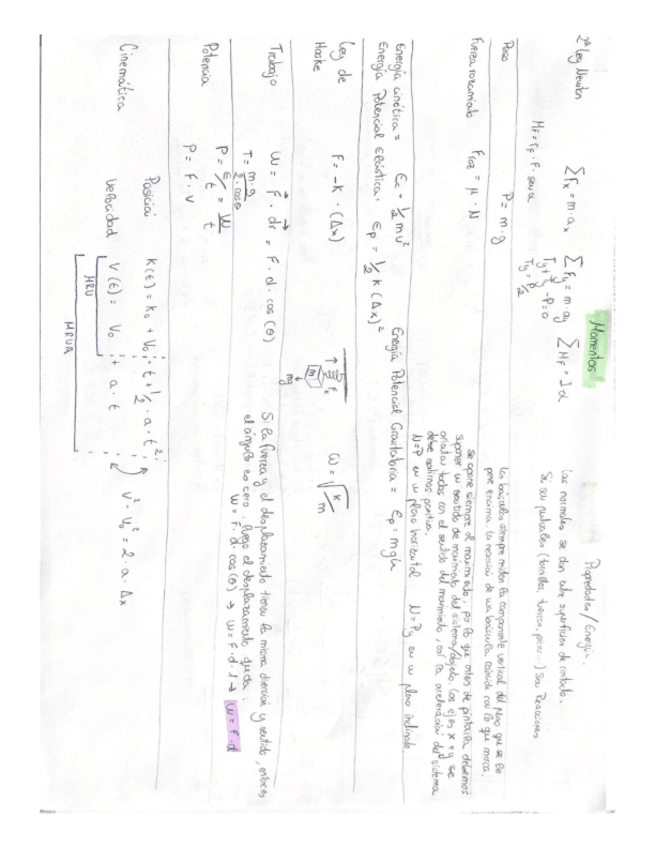 Momentos
Propiedades/Energía.
2ª Ley Newton
∑Fx = m·ax
∑Fy = m·ay
∑MF = I α
Ty + Ty - P = 0
Ty = P/2
MF = rF · F · senα
Las normales se dan entre superficies de contacto.
Si son puntuales (tornillos, tuercas, ...) Son Reacciones
Peso
P = m·g
Las básculas siempre miden la componente vertical del peso que se le
pone encima. La reacción de una báscula coincide con lo que marca.
Fuerza rozamiento
Froz = μ · N
Se opone siempre al movimiento, por lo que antes de pintarla debemos
suponer un sentido de movimiento del sistema/objeto. Los ejes x e y se
orientan todos con el sentido del movimiento, así la aceleración del sistema
debe salirnos positiva.
N=P en un plano horizontal N=Py en un plano inclinado.
Energía cinética = Ec = 1/2 mv²
Energía Potencial Gravitatoria = Ep = mgh
Energía Potencial Elástica = Ep = 1/2 k (Δx)²
Ley de
Hooke
F = -K · (Δx)
Fe
m
mg
ω = √(k/m)
Trabajo
W = F · dr = F · d · cos(θ)
T = m·g / 2·cosθ
Si la fuerza y el desplazamiento tienen la misma dirección y sentido, entonces
el ángulo es cero. Luego el desplazamiento queda:
W = F·d·cos(θ) → W = F·d·1 → W = F·d
Potencia
P = E/t = W/t
P = F · v
Cinemática
Posición: X(t) = X0 + V0·t + 1/2·a·t²
Velocidad V(t) = V0 + a·t
v² - v0² = 2·a·Δx
MRU
MRUA